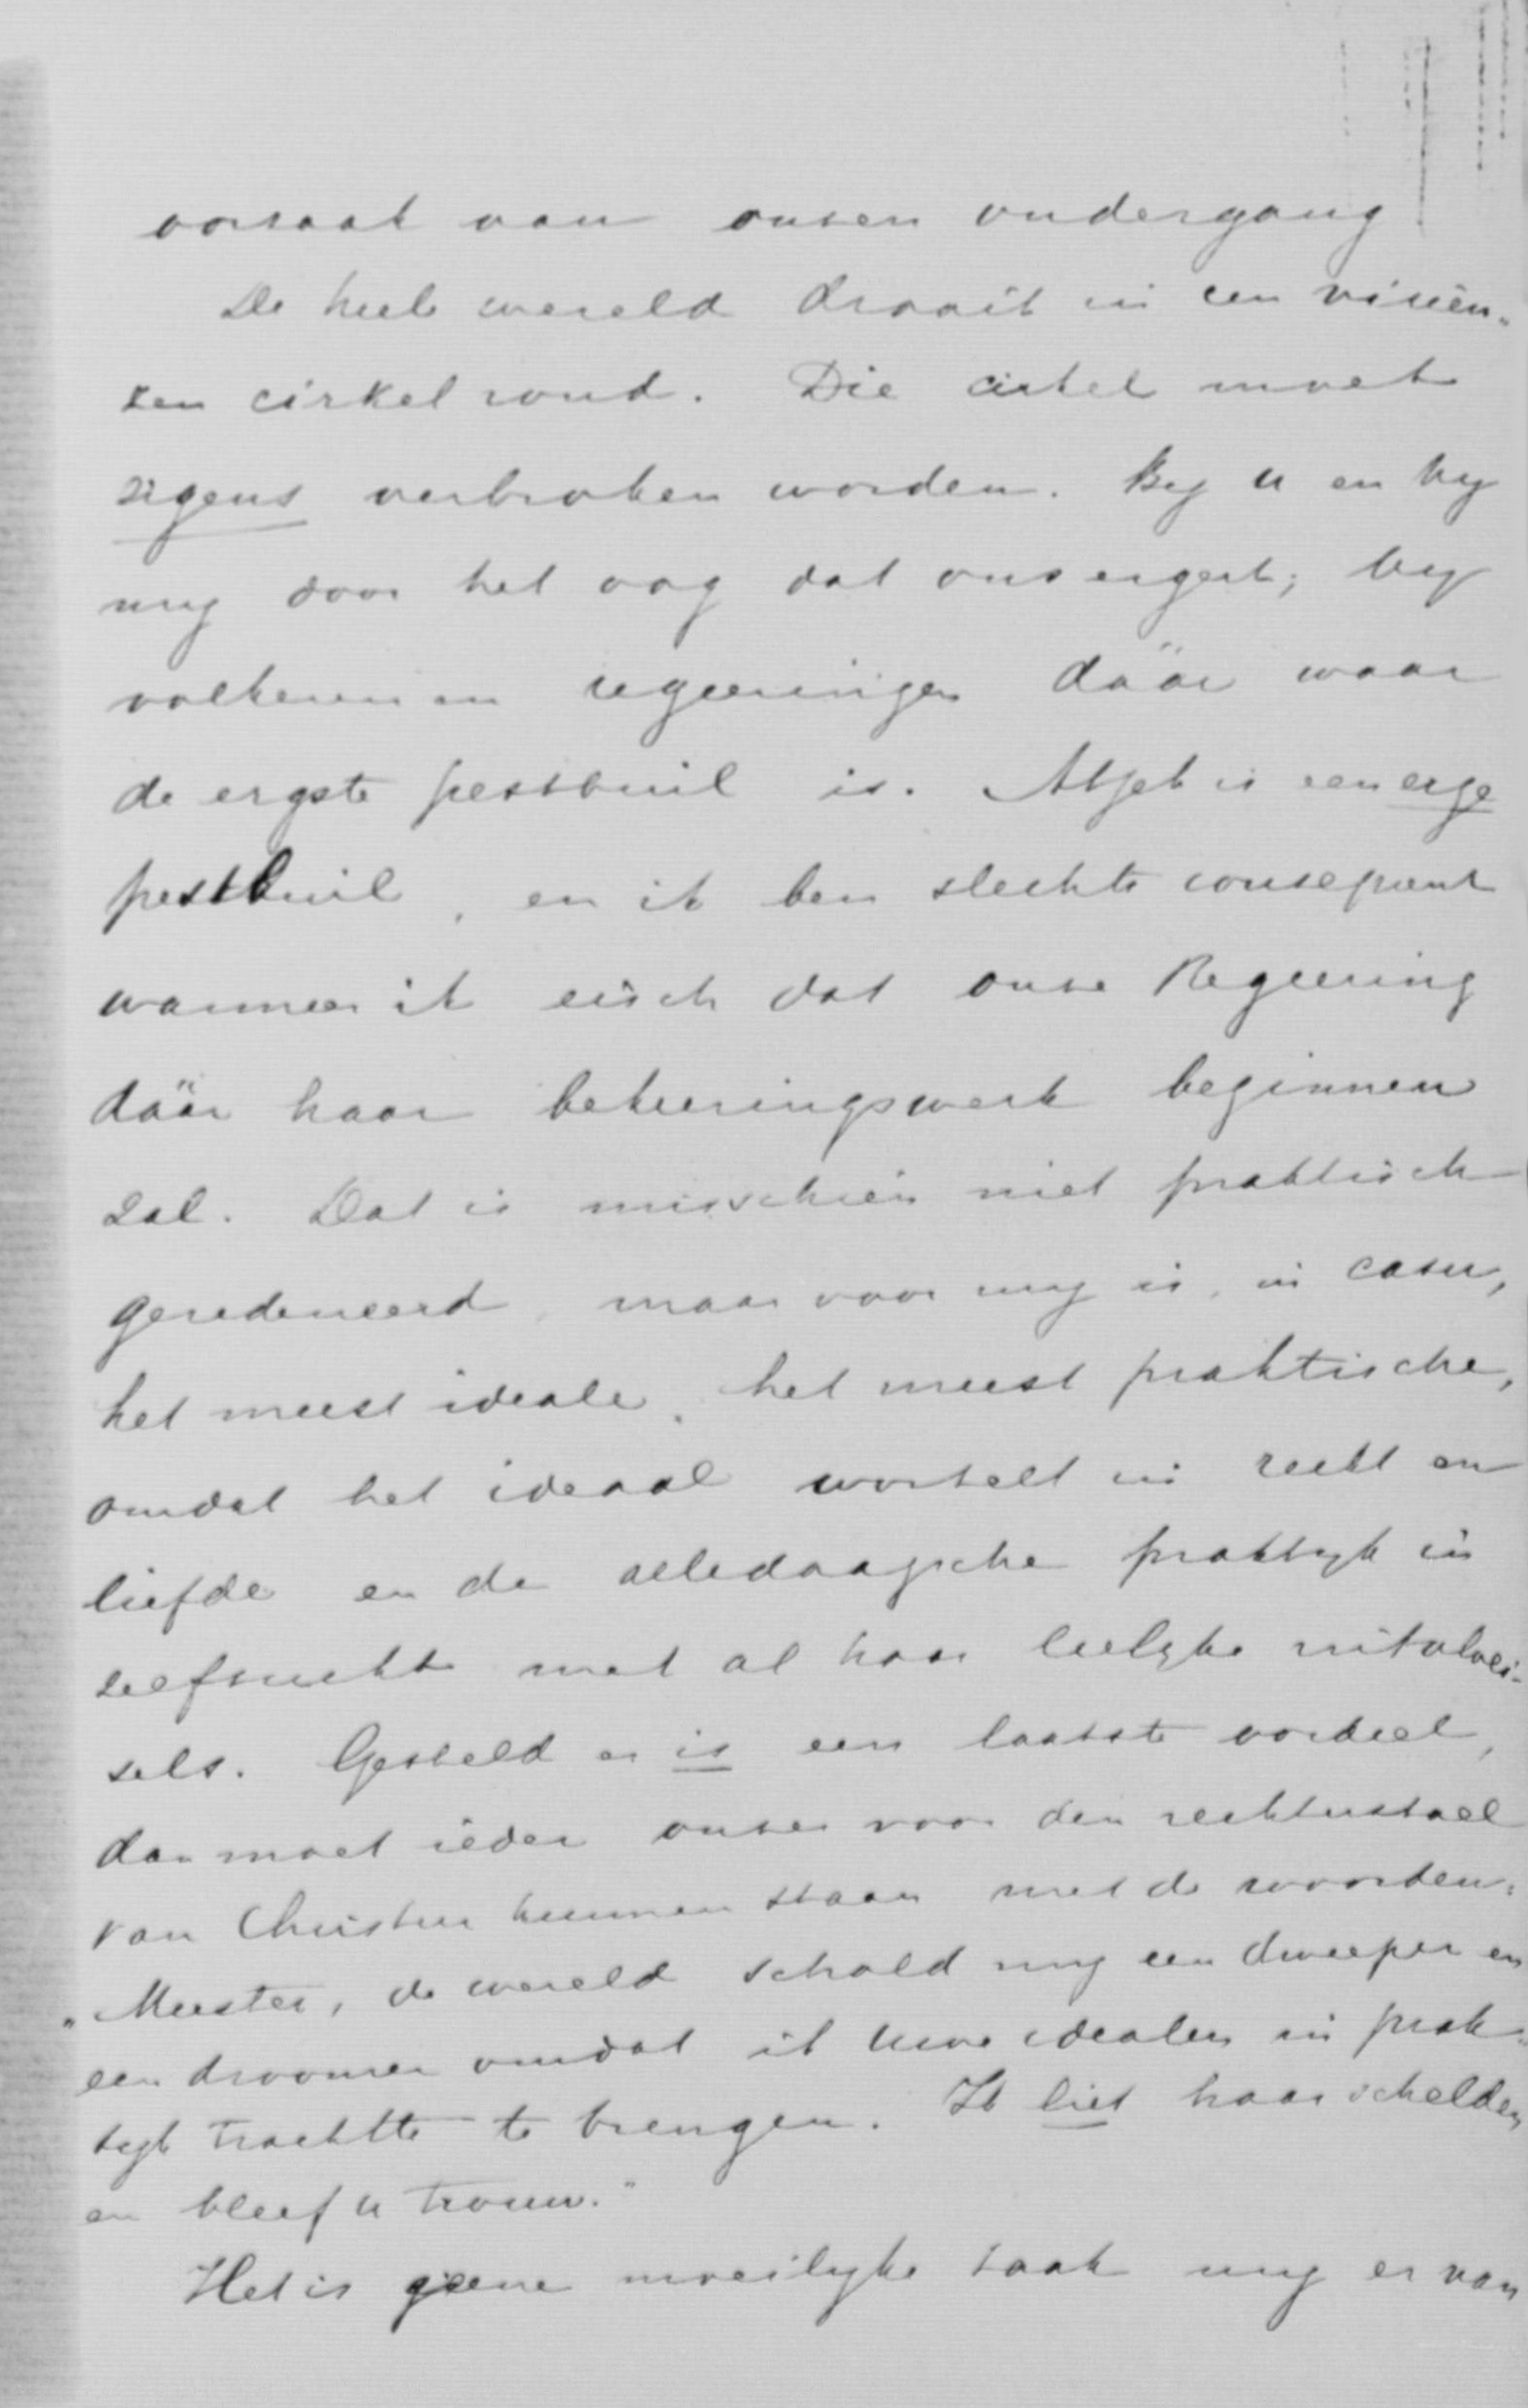 oorzaak van onzen ondergang
De heele wereld draait in een viciëu-
zen cirkel rond. Die cirkel moet
ergens verbroken worden. By u en by
my door het oog dat ons ergert; by
volkeren en regeeringen dáár waar
de ergste pestbuil is. Atjeh is een erge
pestbuil, en ik ben slechts consequent
wanneer ik eisch dat onze Regeering
dáár haar bekeeringswerk beginnen
zal. Dat is misschien niet praktisch
geredeneerd, maar voor my is, in casu,
het meest ideale, het meest praktische,
omdat het ideaal wortelt in recht en
liefde en de alledaagsche praktyk in
zelfzucht met al haar leelyke uitvloei-
sels. Gesteld er is een laatste oordeel,
dan moet ieder onzer voor den rechterstoel
van Christus kunnen staan met de woorden:
"Meester, de wereld schold my een dweeper en
een droomer omdat ik Uwe idealen in prak-
tyk trachtte te brengen. Ik liet haar schelden
en bleef u trouw."
Het is geene moeilyke taak my er van